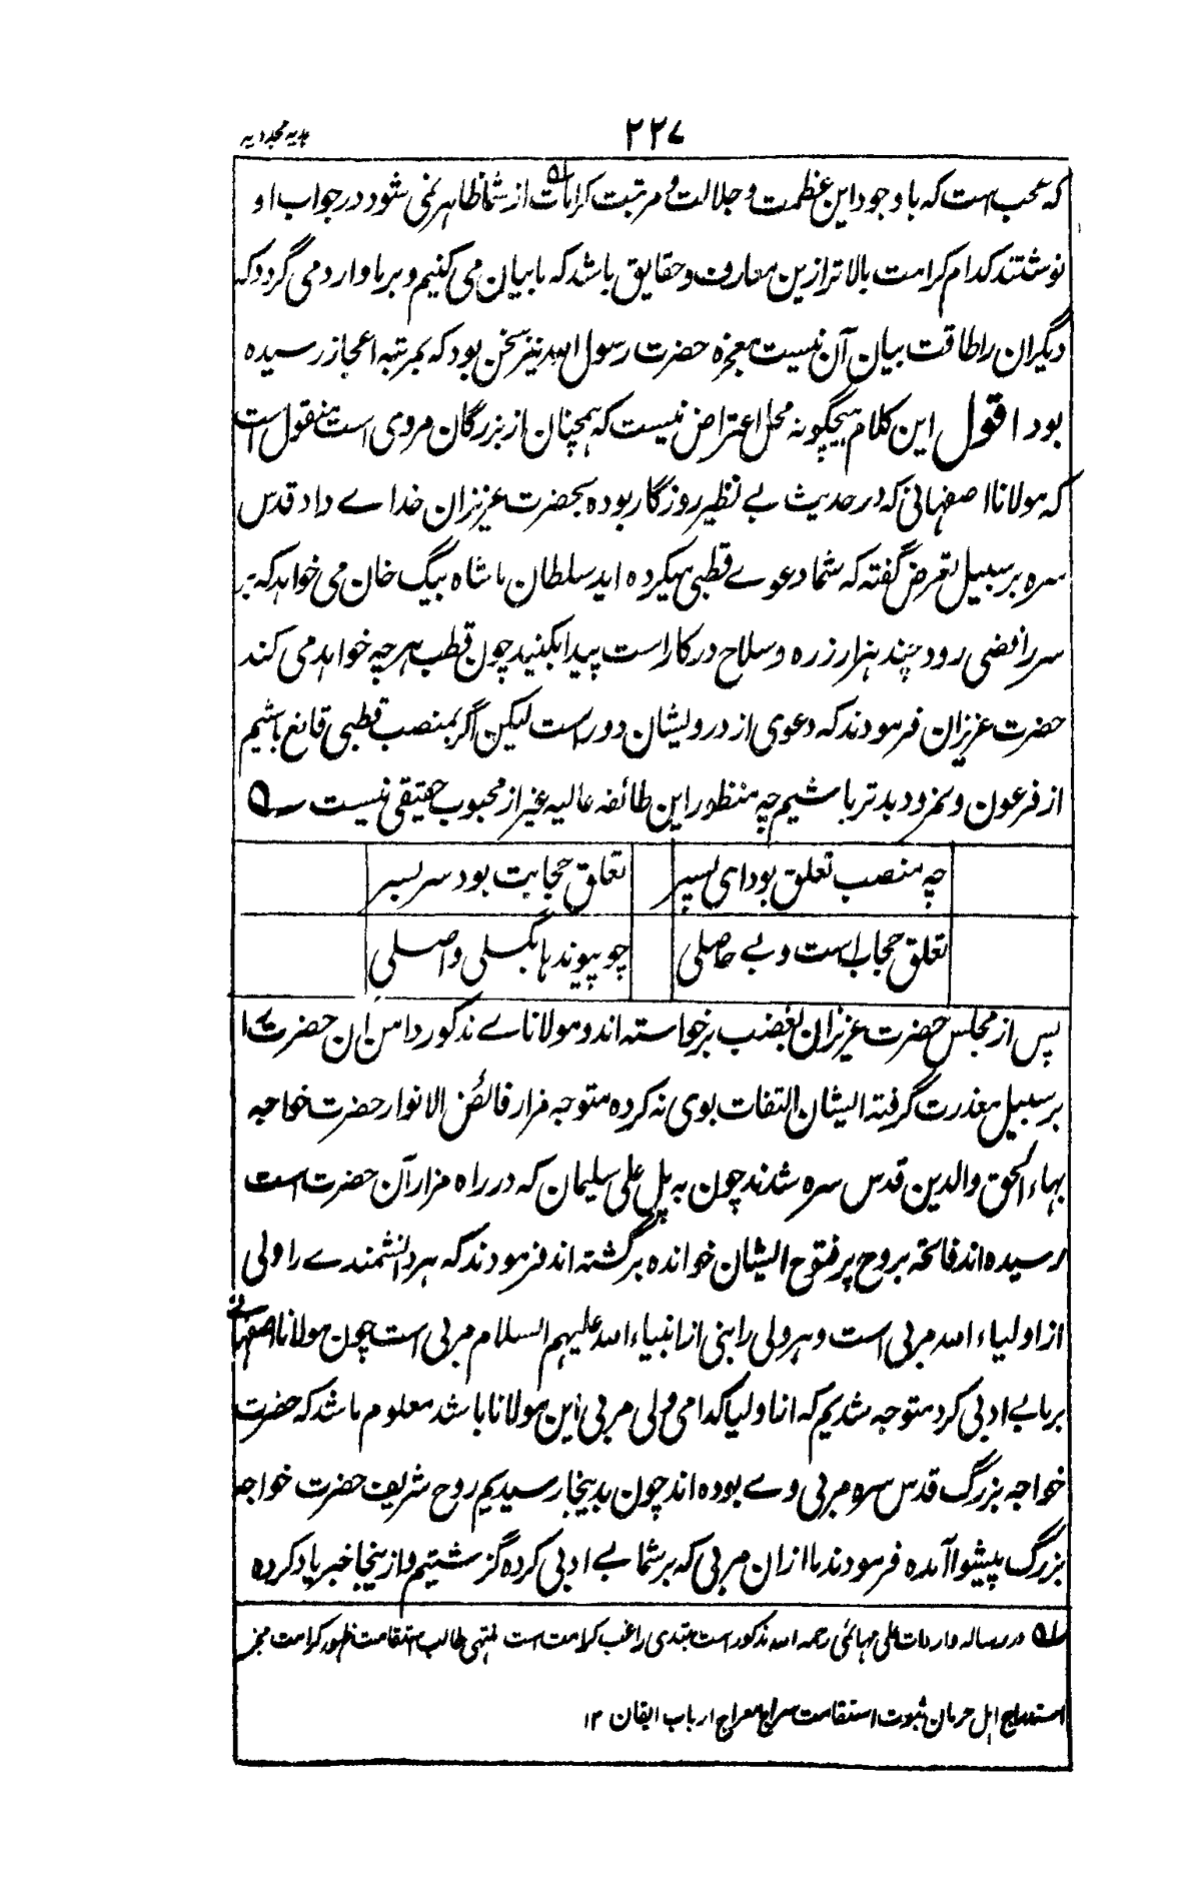 ۲۲۷
ہدیہ مجددیہ
کہ عجب است کہ با وجود این عظمت و جلالت و مرتبت کرامات از شما ظاہر نمی شود در جواب او
نوشتند کدام کرامت بالا تر ازین معارف و حقایق باشد کہ ما بیان می کنیم و بر ما وارد می گردد کہ
دیگران را طاقت بیان آن نیست معجزہ حضرت رسول اللہ نیز سخن بود کہ بمرتبہ اعجاز رسیدہ
بود اقول این کلام ہیچگونہ محل اعتراض نیست کہ ہمچنان از بزرگان مروی است منقول است
کہ مولانا اصفہانی کہ در حدیث بے نظیر روزگار بودہ بحضرت عزیزان خداے داد قدس
سرہ بر سبیل تعرض گفتہ کہ شما دعوے قطبی میکردہ اید سلطان ما شاہ بیگ خان می خواہد کہ بر
سر رافضی رود چند ہزار زرہ و سلاح درکار است پیدا بکنید چون قطب ہر چہ خواہد می کند
حضرت عزیزان فرمودند کہ دعوی از درویشان دور است لیکن اگر بمنصب قطبی قانع باشیم
از فرعون و نمرود بدتر باشیم چہ منظور این طائفہ عالیہ غیر از محبوب حقیقی نیست ہ
چہ منصب تعلق بود ای پسر تعلق حجابت بود سر بسر
تعلق حجاب است و بے حاصلی چو پیوندہا بگسلی واصلی
پس از مجلس حضرت عزیزان بغضب برخواستہ اند و مولاناے مذکور دامن آن حضرت را
بر سبیل معذرت گرفتہ ایشان التفات بوی نہ کردہ متوجہ مزار فائض الانوار حضرت خواجہ
بہاء الحق والدین قدس سرہ شدند چون بہ پل علی سلیمان کہ در راہ مزار آن حضرت است
رسیدہ اند فاتحہ بروح پر فتوح ایشان خواندہ برگشتہ اند فرمودند کہ ہر دانشمندے را ولی
از اولیاء اللہ مربی است و ہر ولی را نبی از انبیاء اللہ علیہم السلام مربی است چون مولانا اصفہانی
بر ما بے ادبی کرد متوجہ شدیم کہ از اولیا کدامی ولی مربی این مولانا باشد معلوم ما شد کہ حضرت
خواجہ بزرگ قدس سرہ مربی وے بودہ اند چون بدینجا رسیدیم روح شریف حضرت خواجہ
بزرگ پیشوا آمدہ فرمودند ما ازان مربی کہ بر شما بے ادبی کردہ گزشتیم و ازینجا خبر یاد کردہ
لہ در رسالہ واردات علی مہائمی رحمہ اللہ مذکور است مبتدی راغب کرامت است منتہی طالب استقامت ظہور کرامت
استدراج اہل حرمان ثبوت استقامت سراج معراج ارباب ایقان ۱۲